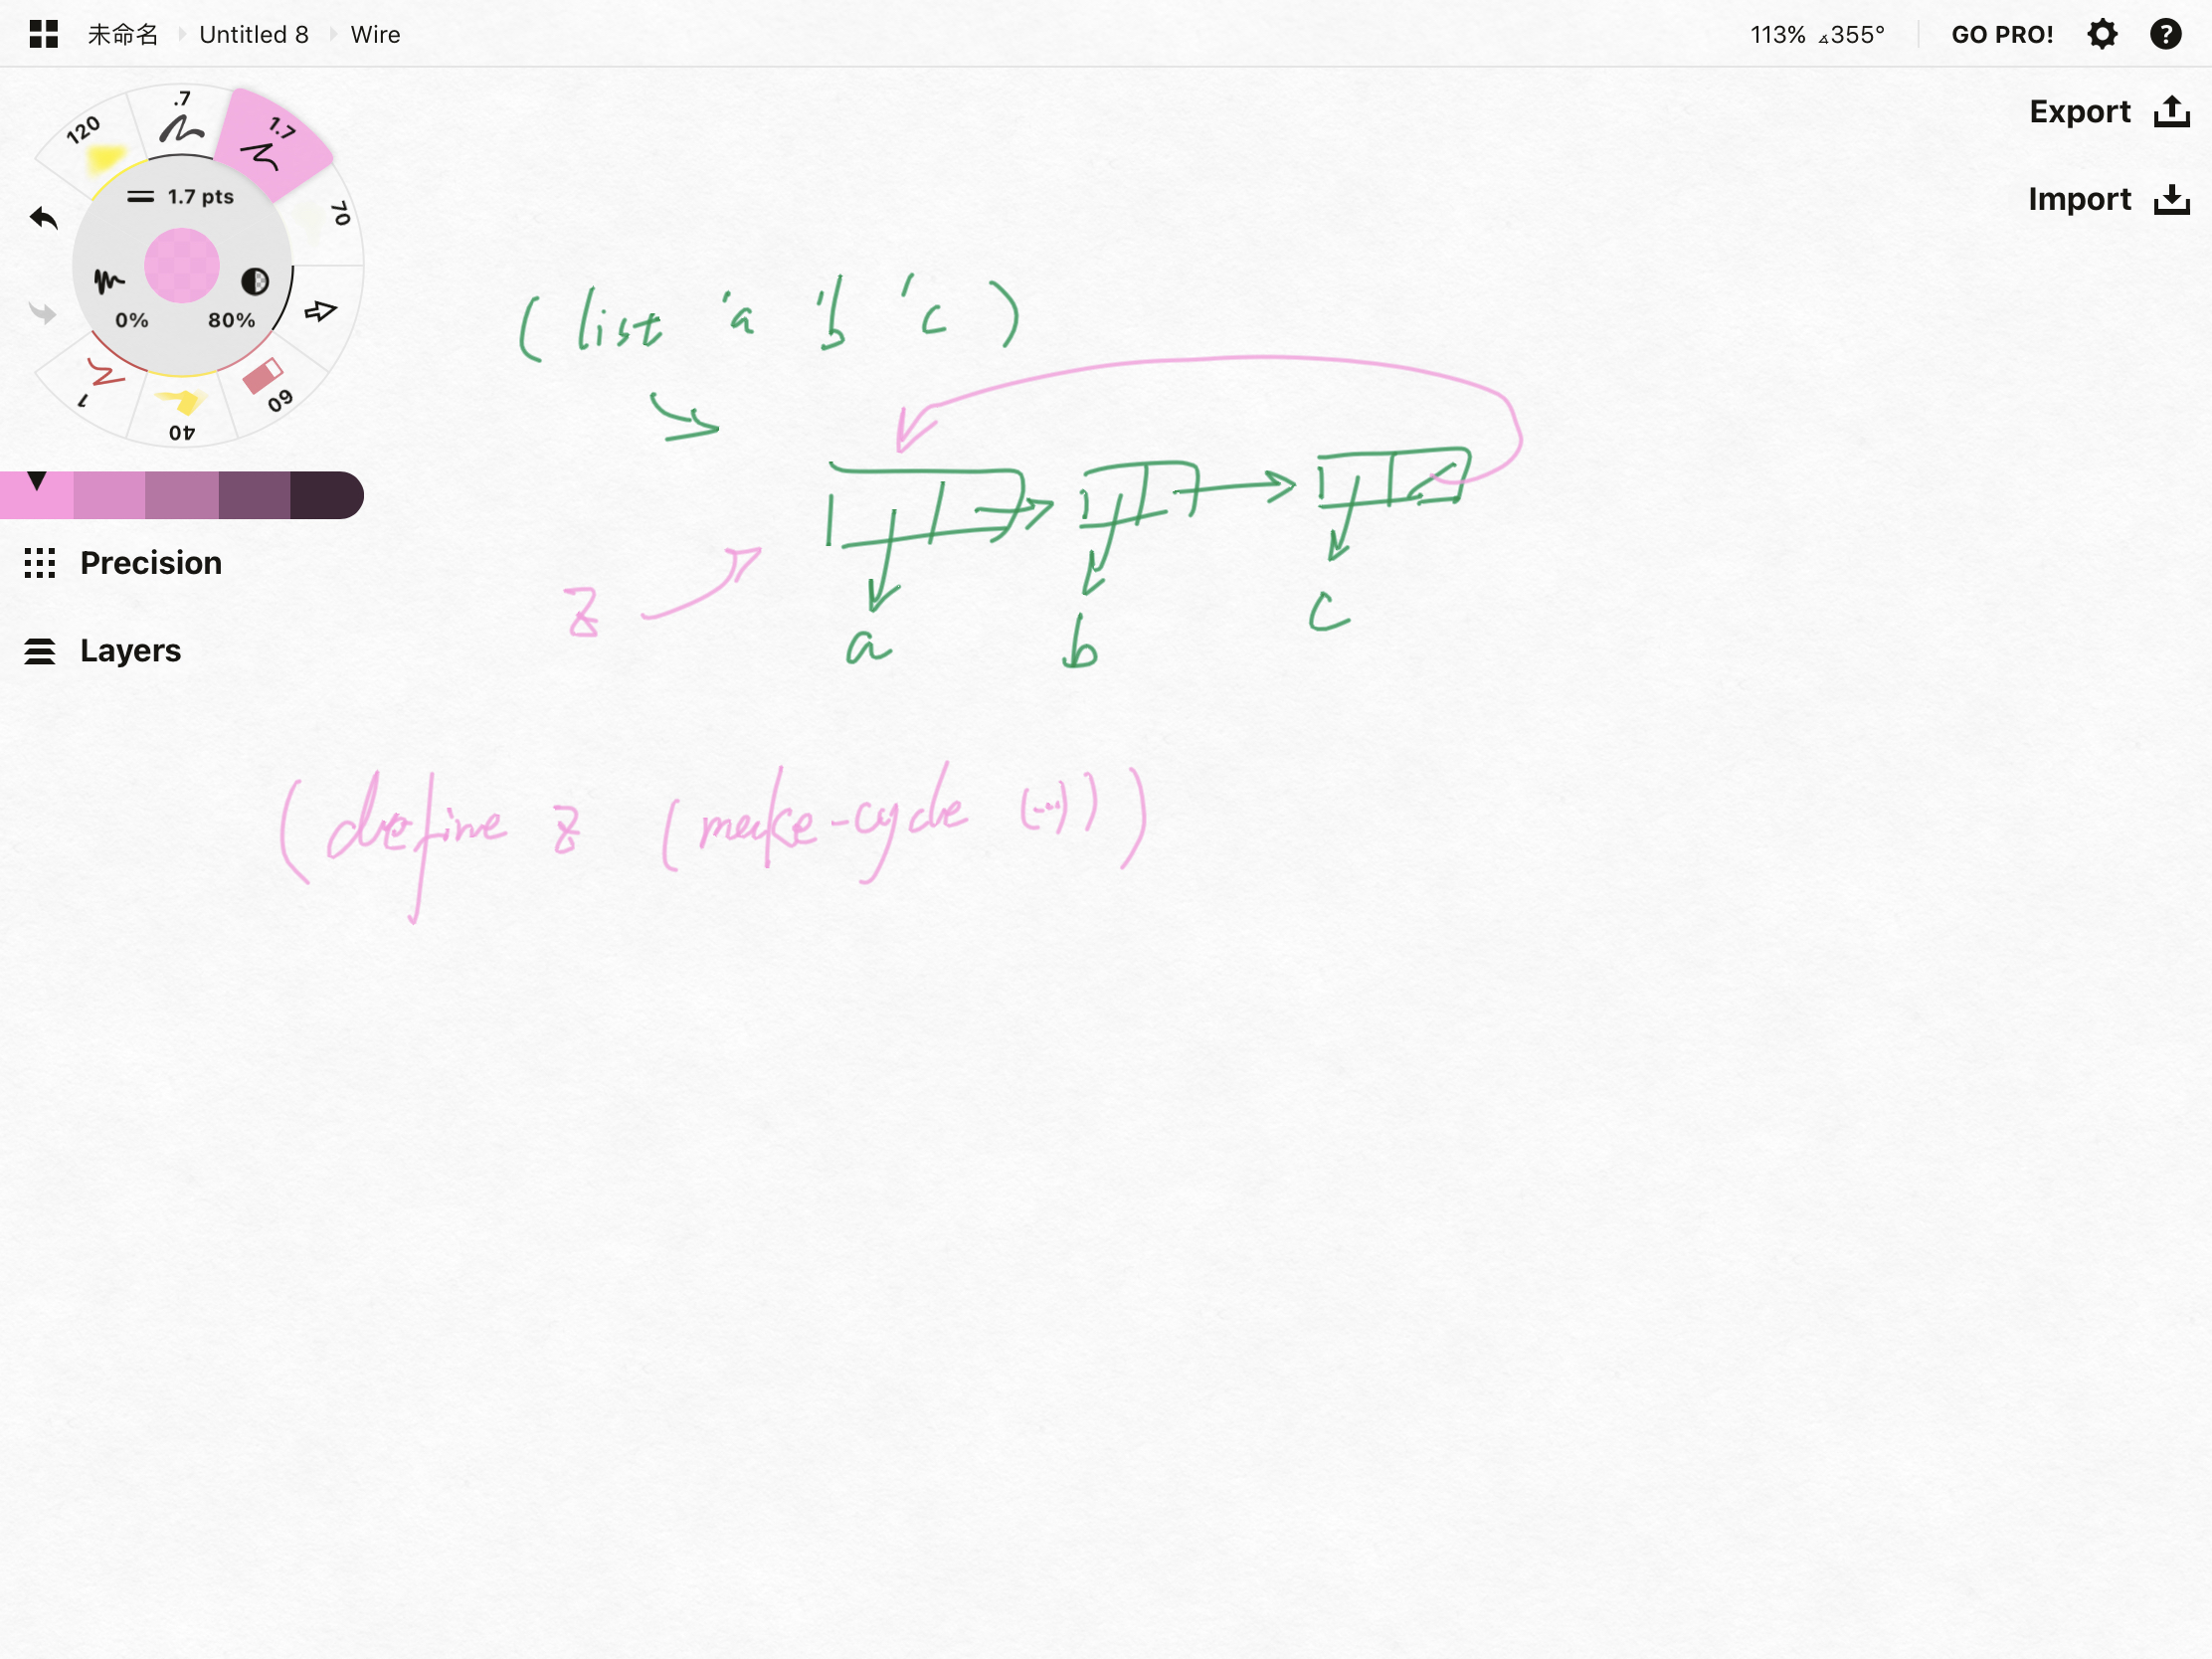 未命名 Untitled 8 Wire 113% ∡355° GO PRO! ?
Export
Import
120 .7 1.7 70
1.7 pts
0% 80%
1 40 60
Precision
Layers
( list 'a 'b 'c )
z
a b c
(define z (make-cycle (...)))